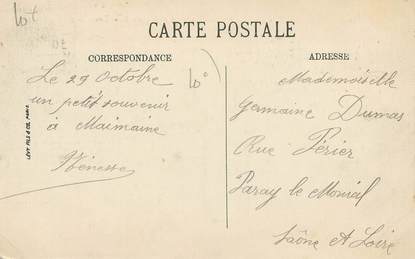 lot
CARTE POSTALE
CORRESPONDANCE
ADRESSE
Le 29 Octobre
un petit souvenir
à Maimaine
10°
Mademoiselle
Germaine Dumas
Rue Périer
Paray le Monial
Saône et Loire
LÉVY FILS & CIE, PARIS